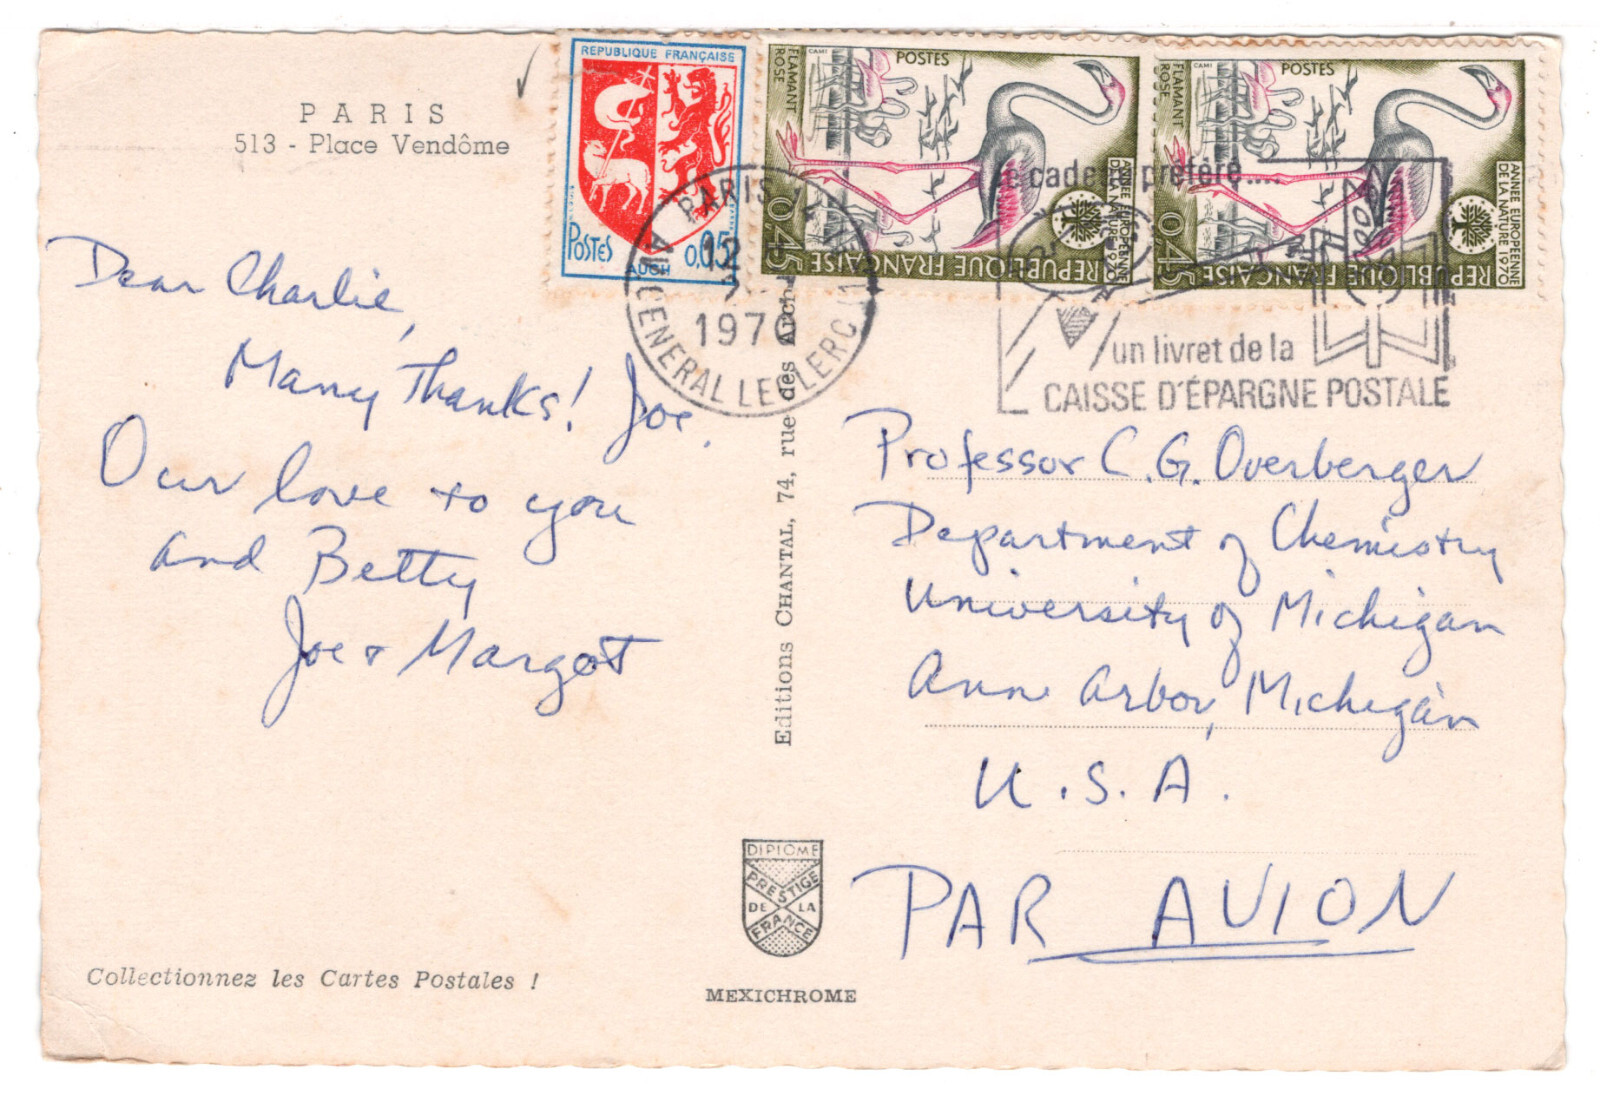 PARIS
513 - Place Vendôme
Dear Charlie,
Many Thanks! Joe.
Our love to you
and Betty
Joe + Margot
Collectionnez les Cartes Postales !
Editions CHANTAL, 74, rue des Arch
DIPLOME
PRESTIGE
DE LA
FRANCE
MEXICHROME
REPUBLIQUE FRANÇAISE
POSTES
0,05
AUCH
FLAMANT
ROSE
CAMI
POSTES
ANNEE EUROPEENNE
DE LA NATURE 1970
0,45
REPUBLIQUE FRANÇAISE
FLAMANT
ROSE
CAMI
POSTES
ANNEE EUROPEENNE
DE LA NATURE 1970
0,45
REPUBLIQUE FRANÇAISE
PARIS
12
1970
AV. GENERAL LECLERC
cade préféré....
un livret de la
CAISSE D'ÉPARGNE POSTALE
Professor C. G. Overberger
Department of Chemistry
University of Michigan
Ann Arbor, Michigan
U.S.A.
PAR AVION